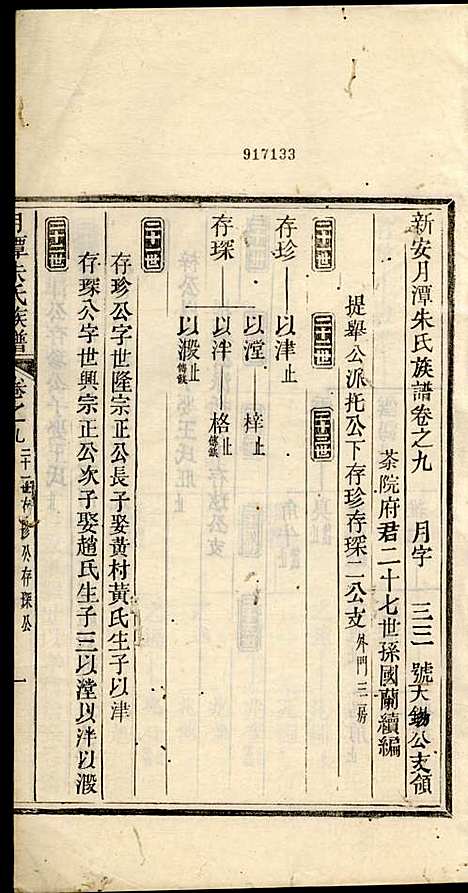 917133
新安月潭朱氏族譜卷之九 月字 三三 號天錫公支領
茶院府君二十七世孫國蘭續編
提舉公派托公下存珍存琛二公支 外門二房
二十一世 二十二世 二十三世
存珍 以津止
以瀅 梓止
存琛 以泮 格 傳缺
以濲止 傳缺
二十一世
存珍公字世隆宗正公長子娶黃村黃氏生子以津
存琛公字世興宗正公次子娶趙氏生子三以瀅以泮以濲
二十二世
月潭朱氏族譜 卷之九 二十一世存珍公存琛公 一